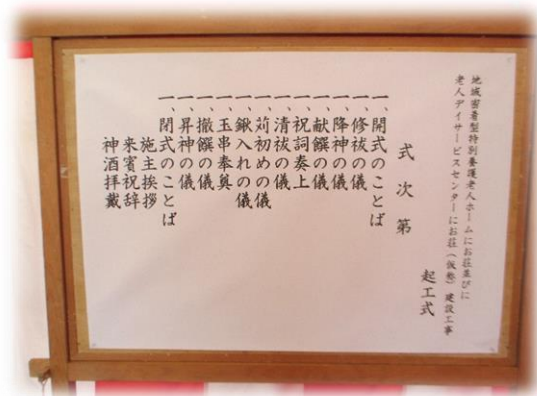 地域密着型特別養護老人ホームにお荘並びに
老人デイサービスセンターにお荘(仮称)建設工事
起工式
式次第
一、開式のことば
一、修祓の儀
一、降神の儀
一、献饌の儀
一、祝詞奏上
一、清祓の儀
一、苅初めの儀
一、鍬入れの儀
一、玉串奉奠
一、撤饌の儀
一、昇神の儀
一、閉式のことば
施主挨拶
来賓祝辞
神酒拝戴